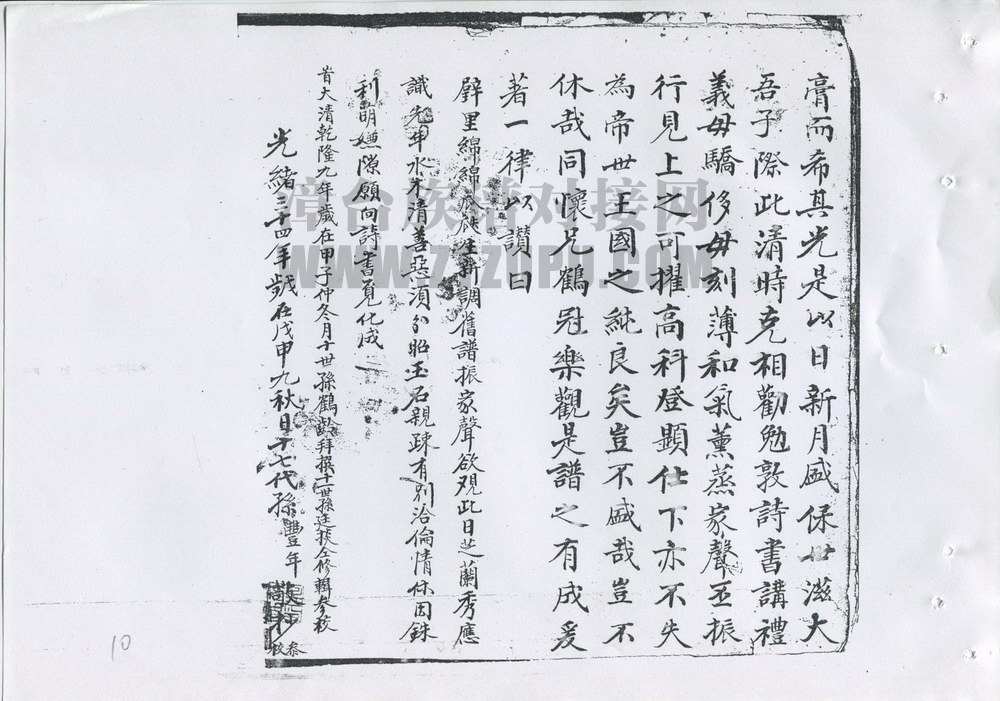 膏而希其光是以日新月盛保世滋大
吾子際此清時克相勸勉敦詩書講禮
義毋驕侈毋刻薄和氣薰蒸家聲丕振
行見上之可擢高科登顯仕下亦不失
為帝世王國之純良矣豈不盛哉豈不
休哉同懷兄鶴冠樂觀是譜之有成爰
著一律以讃曰
薛里綿綿瓞生新調舊譜振家聲欲覌此日芝蘭秀應
識先年水木清善惡須分昭玉石親疎有別洽倫情休因銖
利萌嫌隙願向詩書覓化成
昔大清乾隆九年歲在甲子仲冬月十世孫鶴齡拜撰十一世孫廷仝修輯參校
光緒三十四年歲在戊申九秋日十七代孫豐年
敬參校
漳台族谱对接网
WWW.ZTZUPU.COM
10